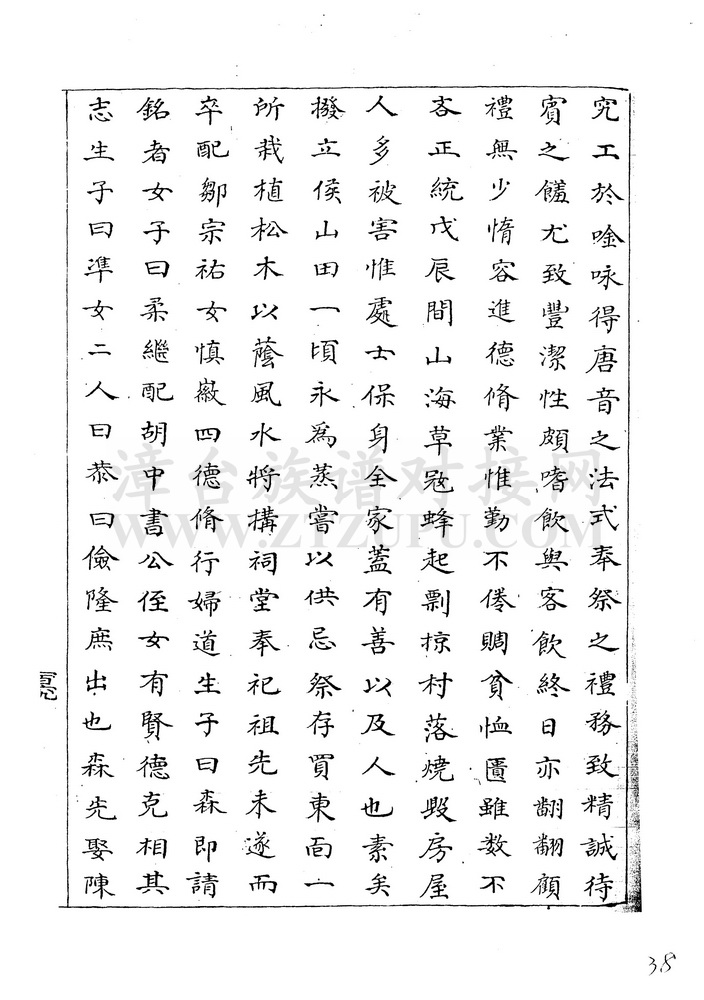 究工於唫咏得唐音之法式奉祭之禮務致精誠待
賓之饈尤致豐潔性頗嗜飲與客飲終日亦翻翻顧
禮無少惰容進德脩業惟勤不倦賙貧恤匱雖数不
吝正統戊辰間山海草寇蜂起剽掠村落燒毀房屋
人多被害惟處士保身全家蓋有善以及人也素矣
撥立侯山田一頃永為蒸嘗以供忌祭存買東面一
所栽植松木以蔭風水將構祠堂奉祀祖先未遂而
卒配鄒宗祐女慎嫩四德脩行婦道生子曰森即請
銘者女子曰柔繼配胡中書公侄女有賢德克相其
志生子曰準女二人曰恭曰儉隆庶出也森先娶陳
漳台族谱对接网
WWW.ZTZUPU.COM
38